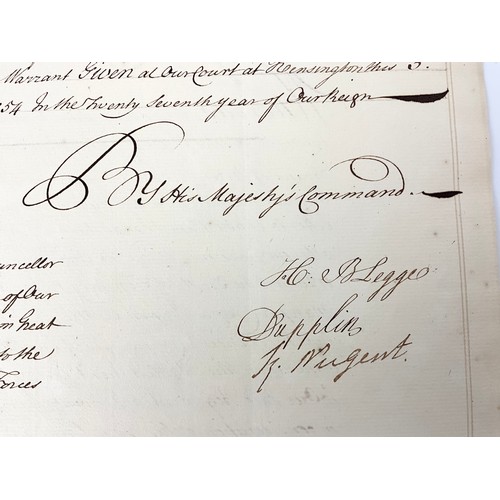 Warrant Given at Our Court at Kensington this 3.
54 In the Twenty Seventh year of Our Reign
By His Majesty's Command
ancellor
of Our
in Great
to the
Forces
H: B Legge
Dupplin
Nugent.